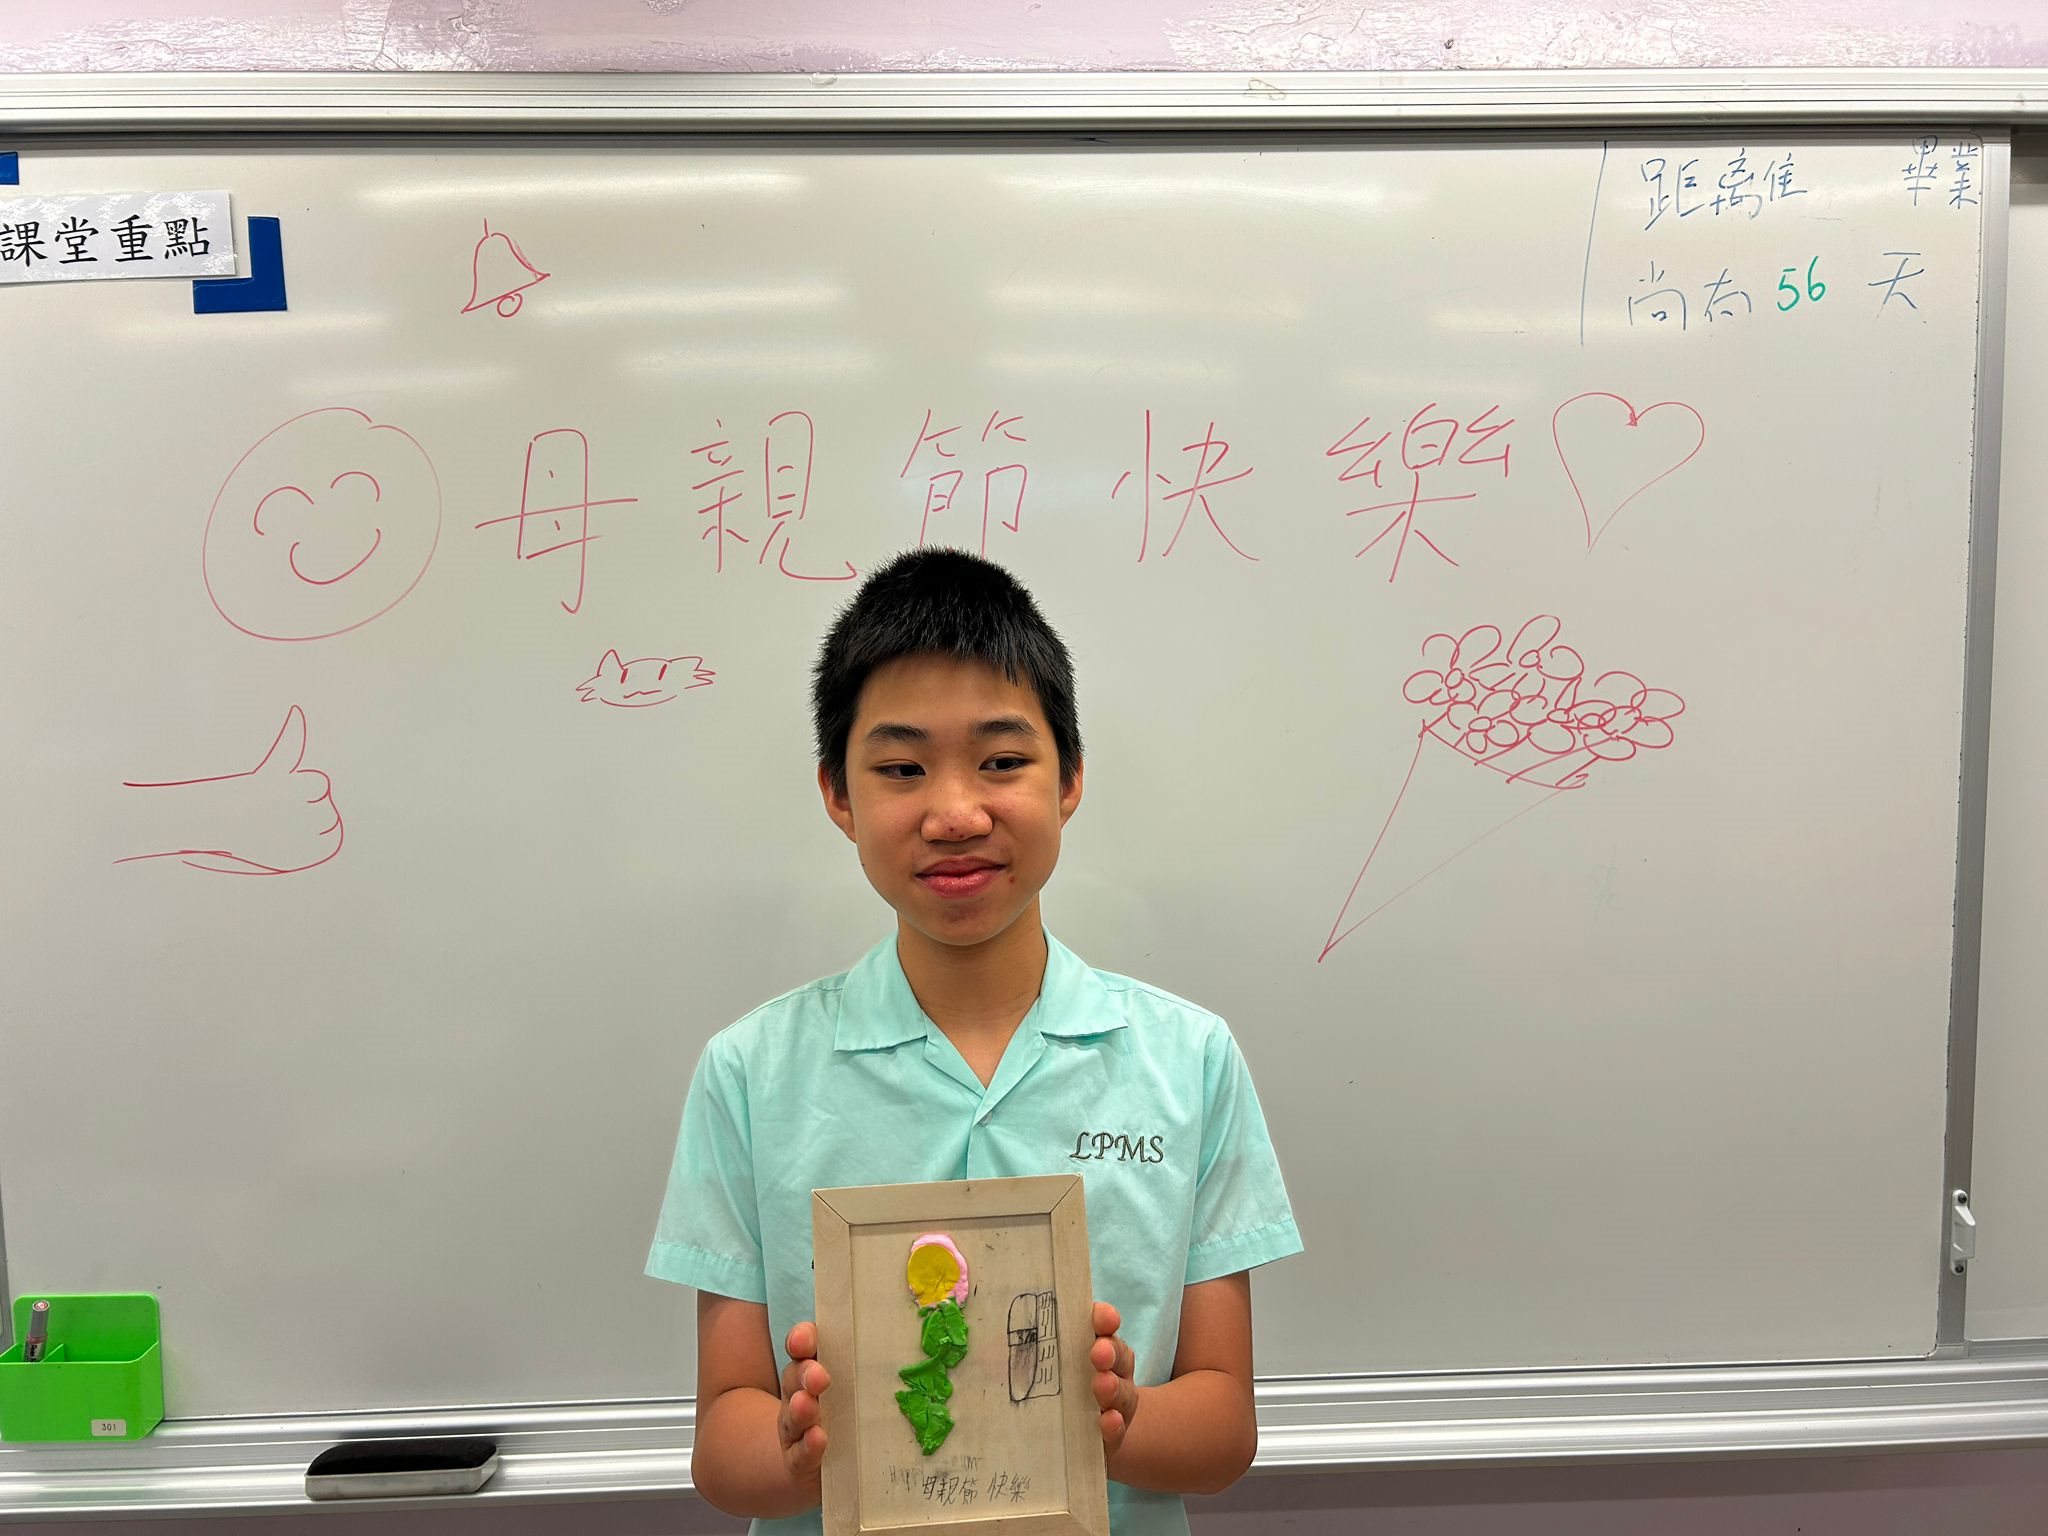 課堂重點
距離 畢業
尚有 56 天
母親節快樂
LPMS
母親節 快樂
301